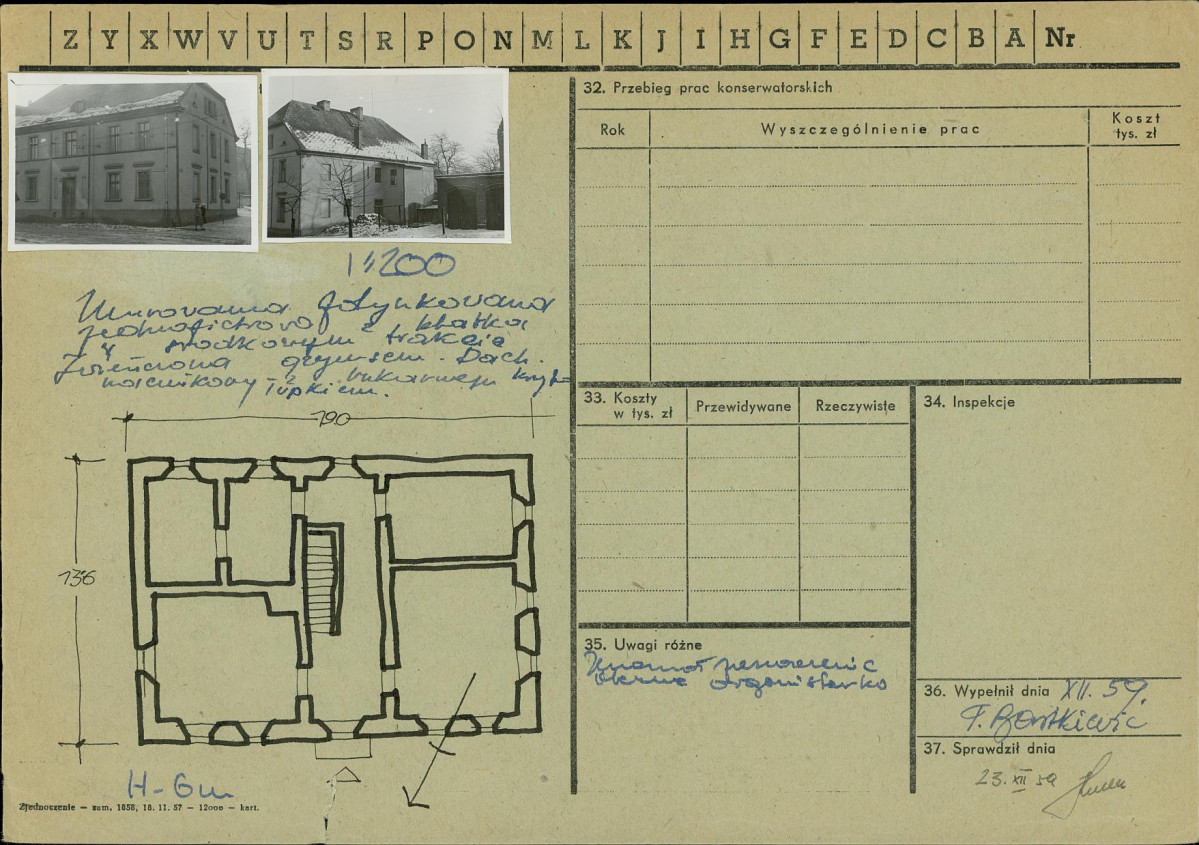 Z Y X W V U T S R P O N M L K J I H G F E D C B A Nr
1:200
Murowana potynkowana
jednopiętrowa z klatką
w środkowym trakcie
Zwieńczona gzymsem. Dach
naczółkowy z
190
136
H-6m
Zjednoczenie — zam. 1858, 18. 11. 57 — 12000 — kart.
32. Przebieg prac konserwatorskich
Rok
Wyszczególnienie prac
Koszt
tys. zł
33. Koszty
w tys. zł
Przewidywane
Rzeczywiste
34. Inspekcje
35. Uwagi różne
obecnie organistówka
36. Wypełnił dnia XII. 59.
F. Bartkiewicz
37. Sprawdził dnia
23. XII 59